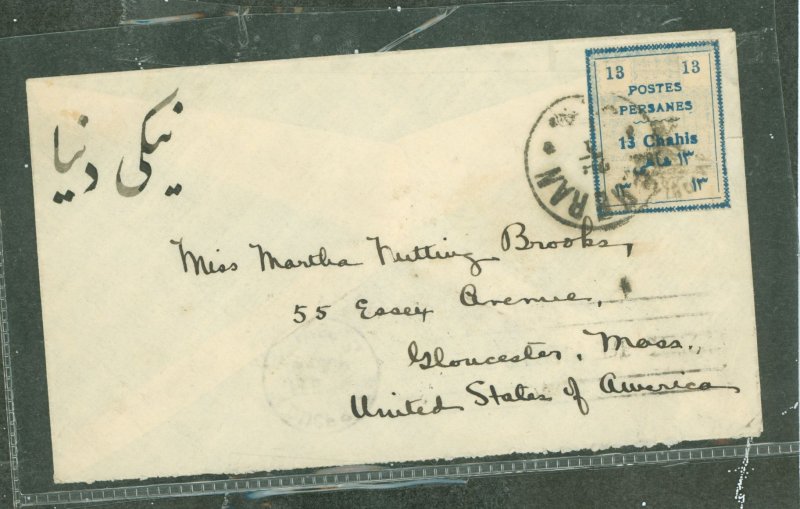 نیکی دنیا
13 13
POSTES
PERSANES
13 Chahis
۱۳
۱۳ ۱۳
Miss Martha Nutting Brooks,
55 Essex Avenue,
Gloucester, Mass.,
United States of America